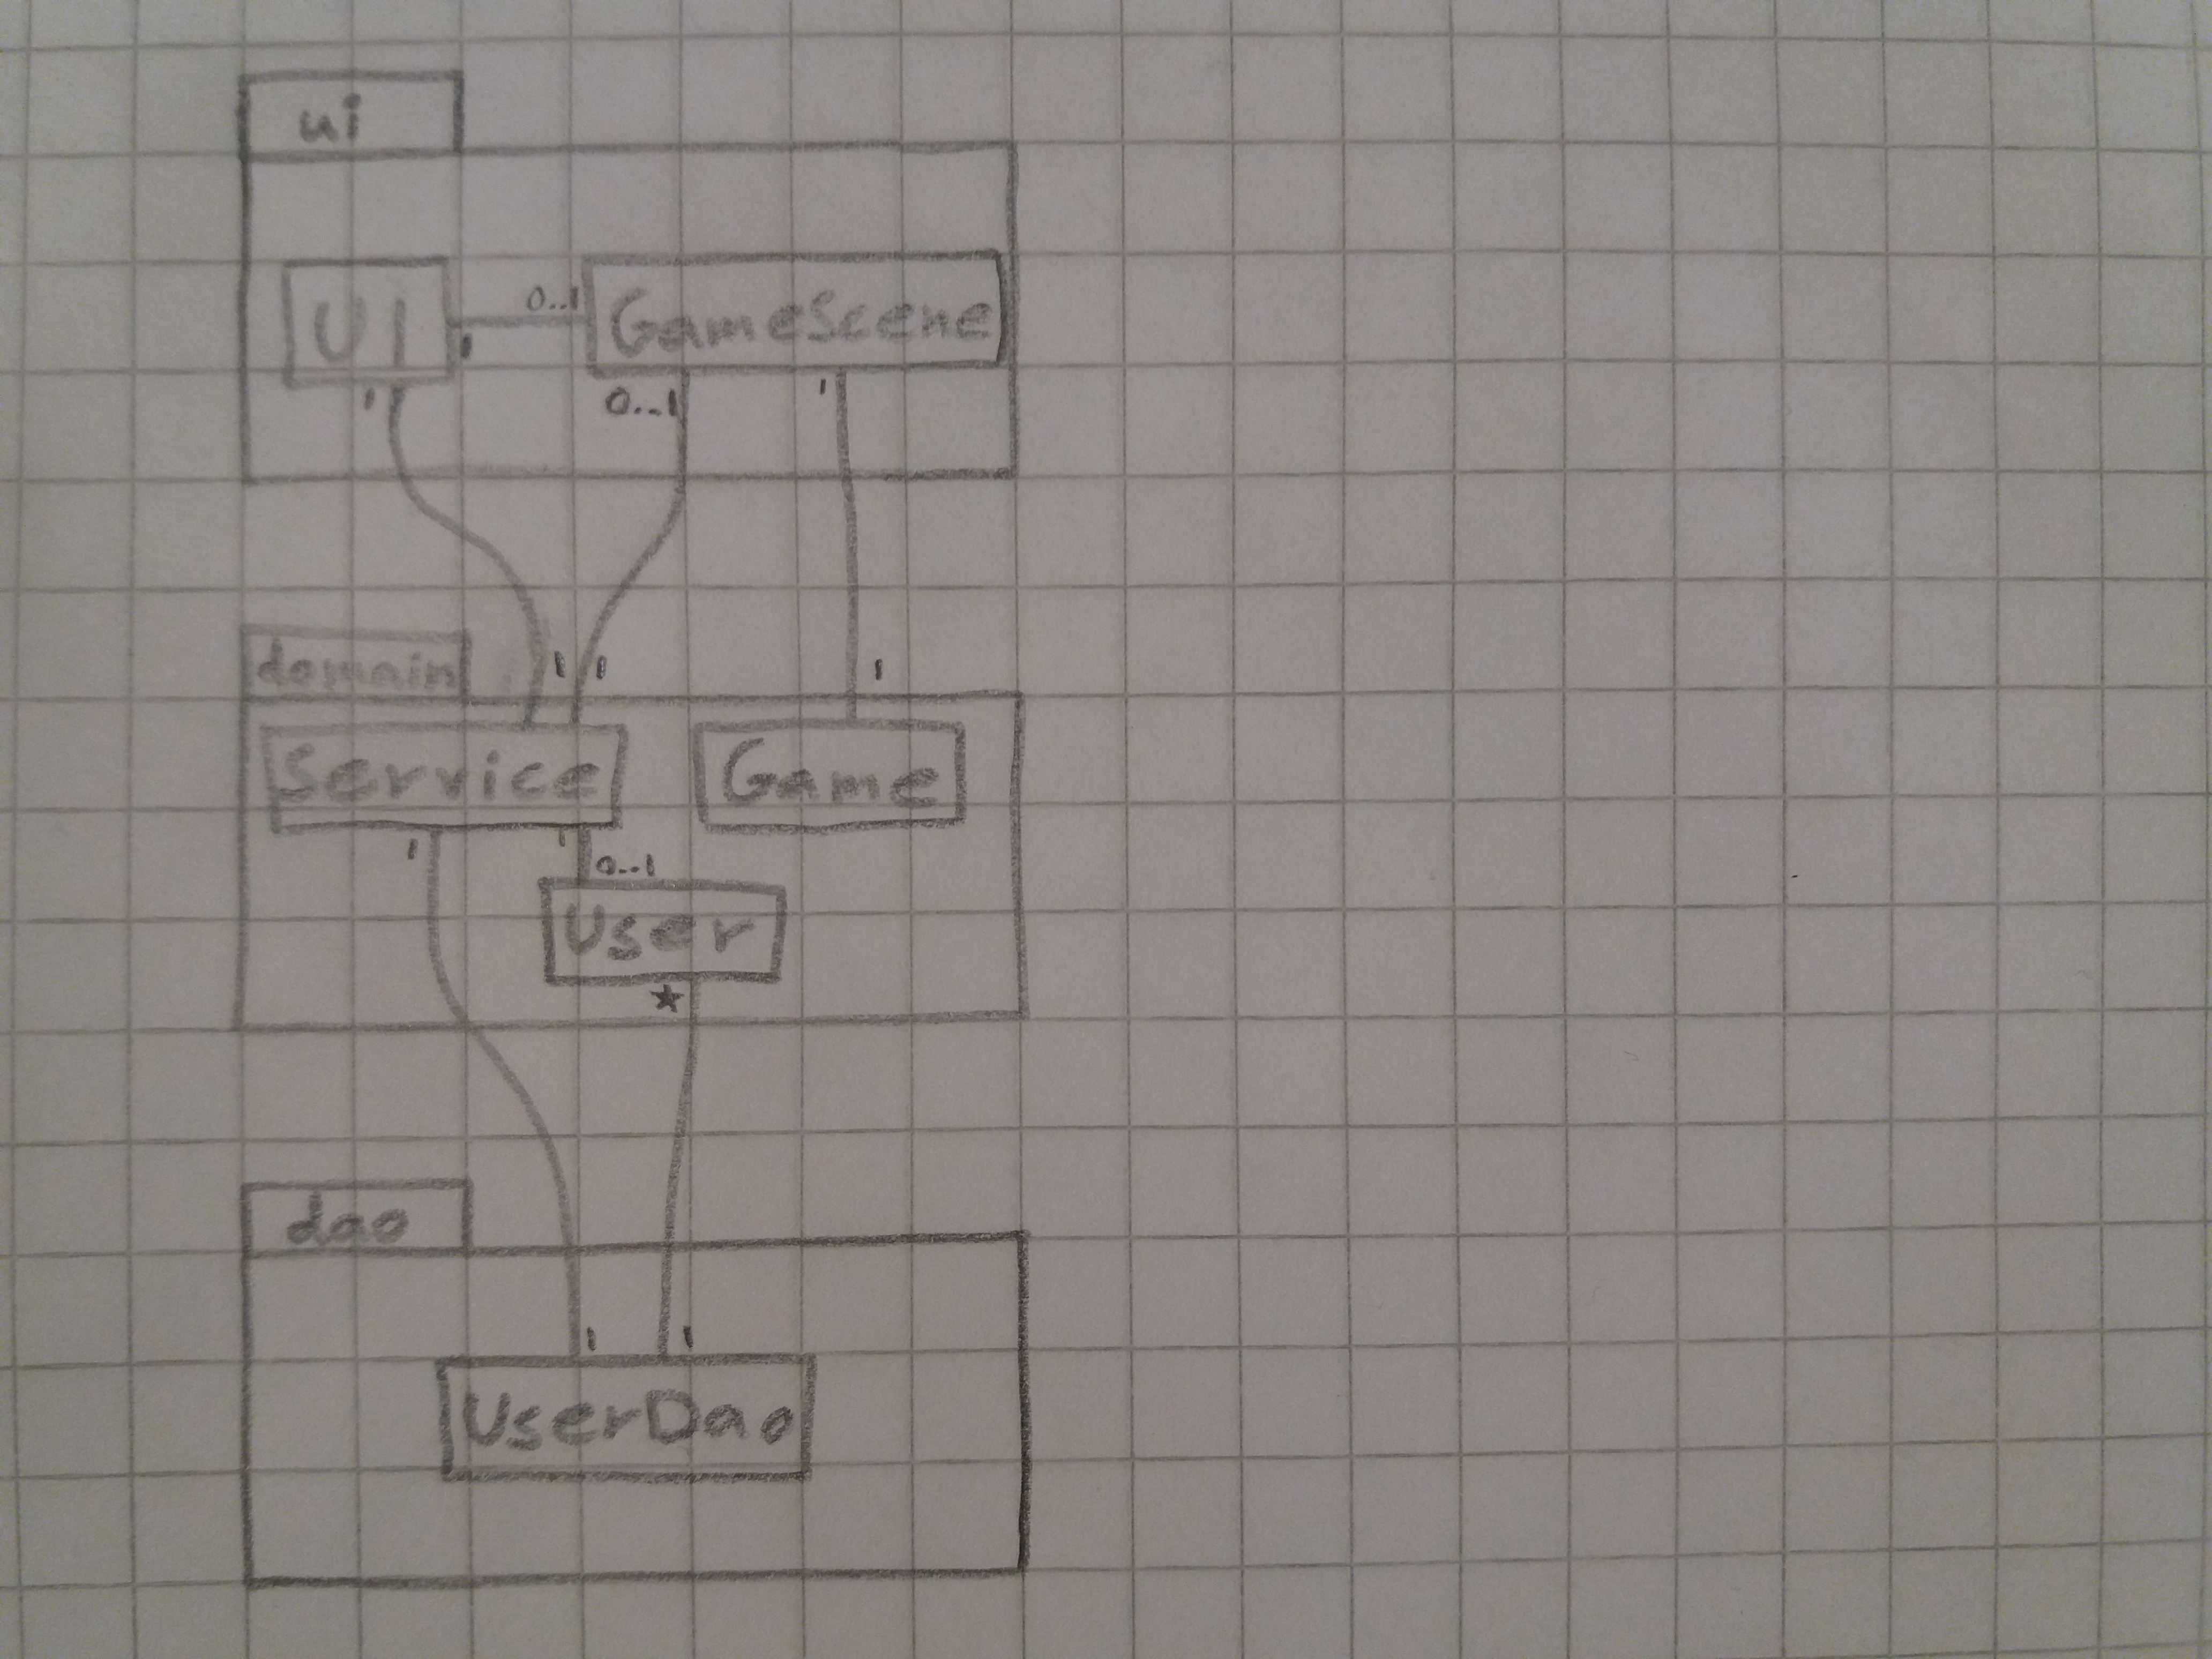 ui
0..1
UI GameScene
1
1 0..1 1
domain 1 1 1
Service Game
1 1
0..1
User
*
dao
1 1
UserDao